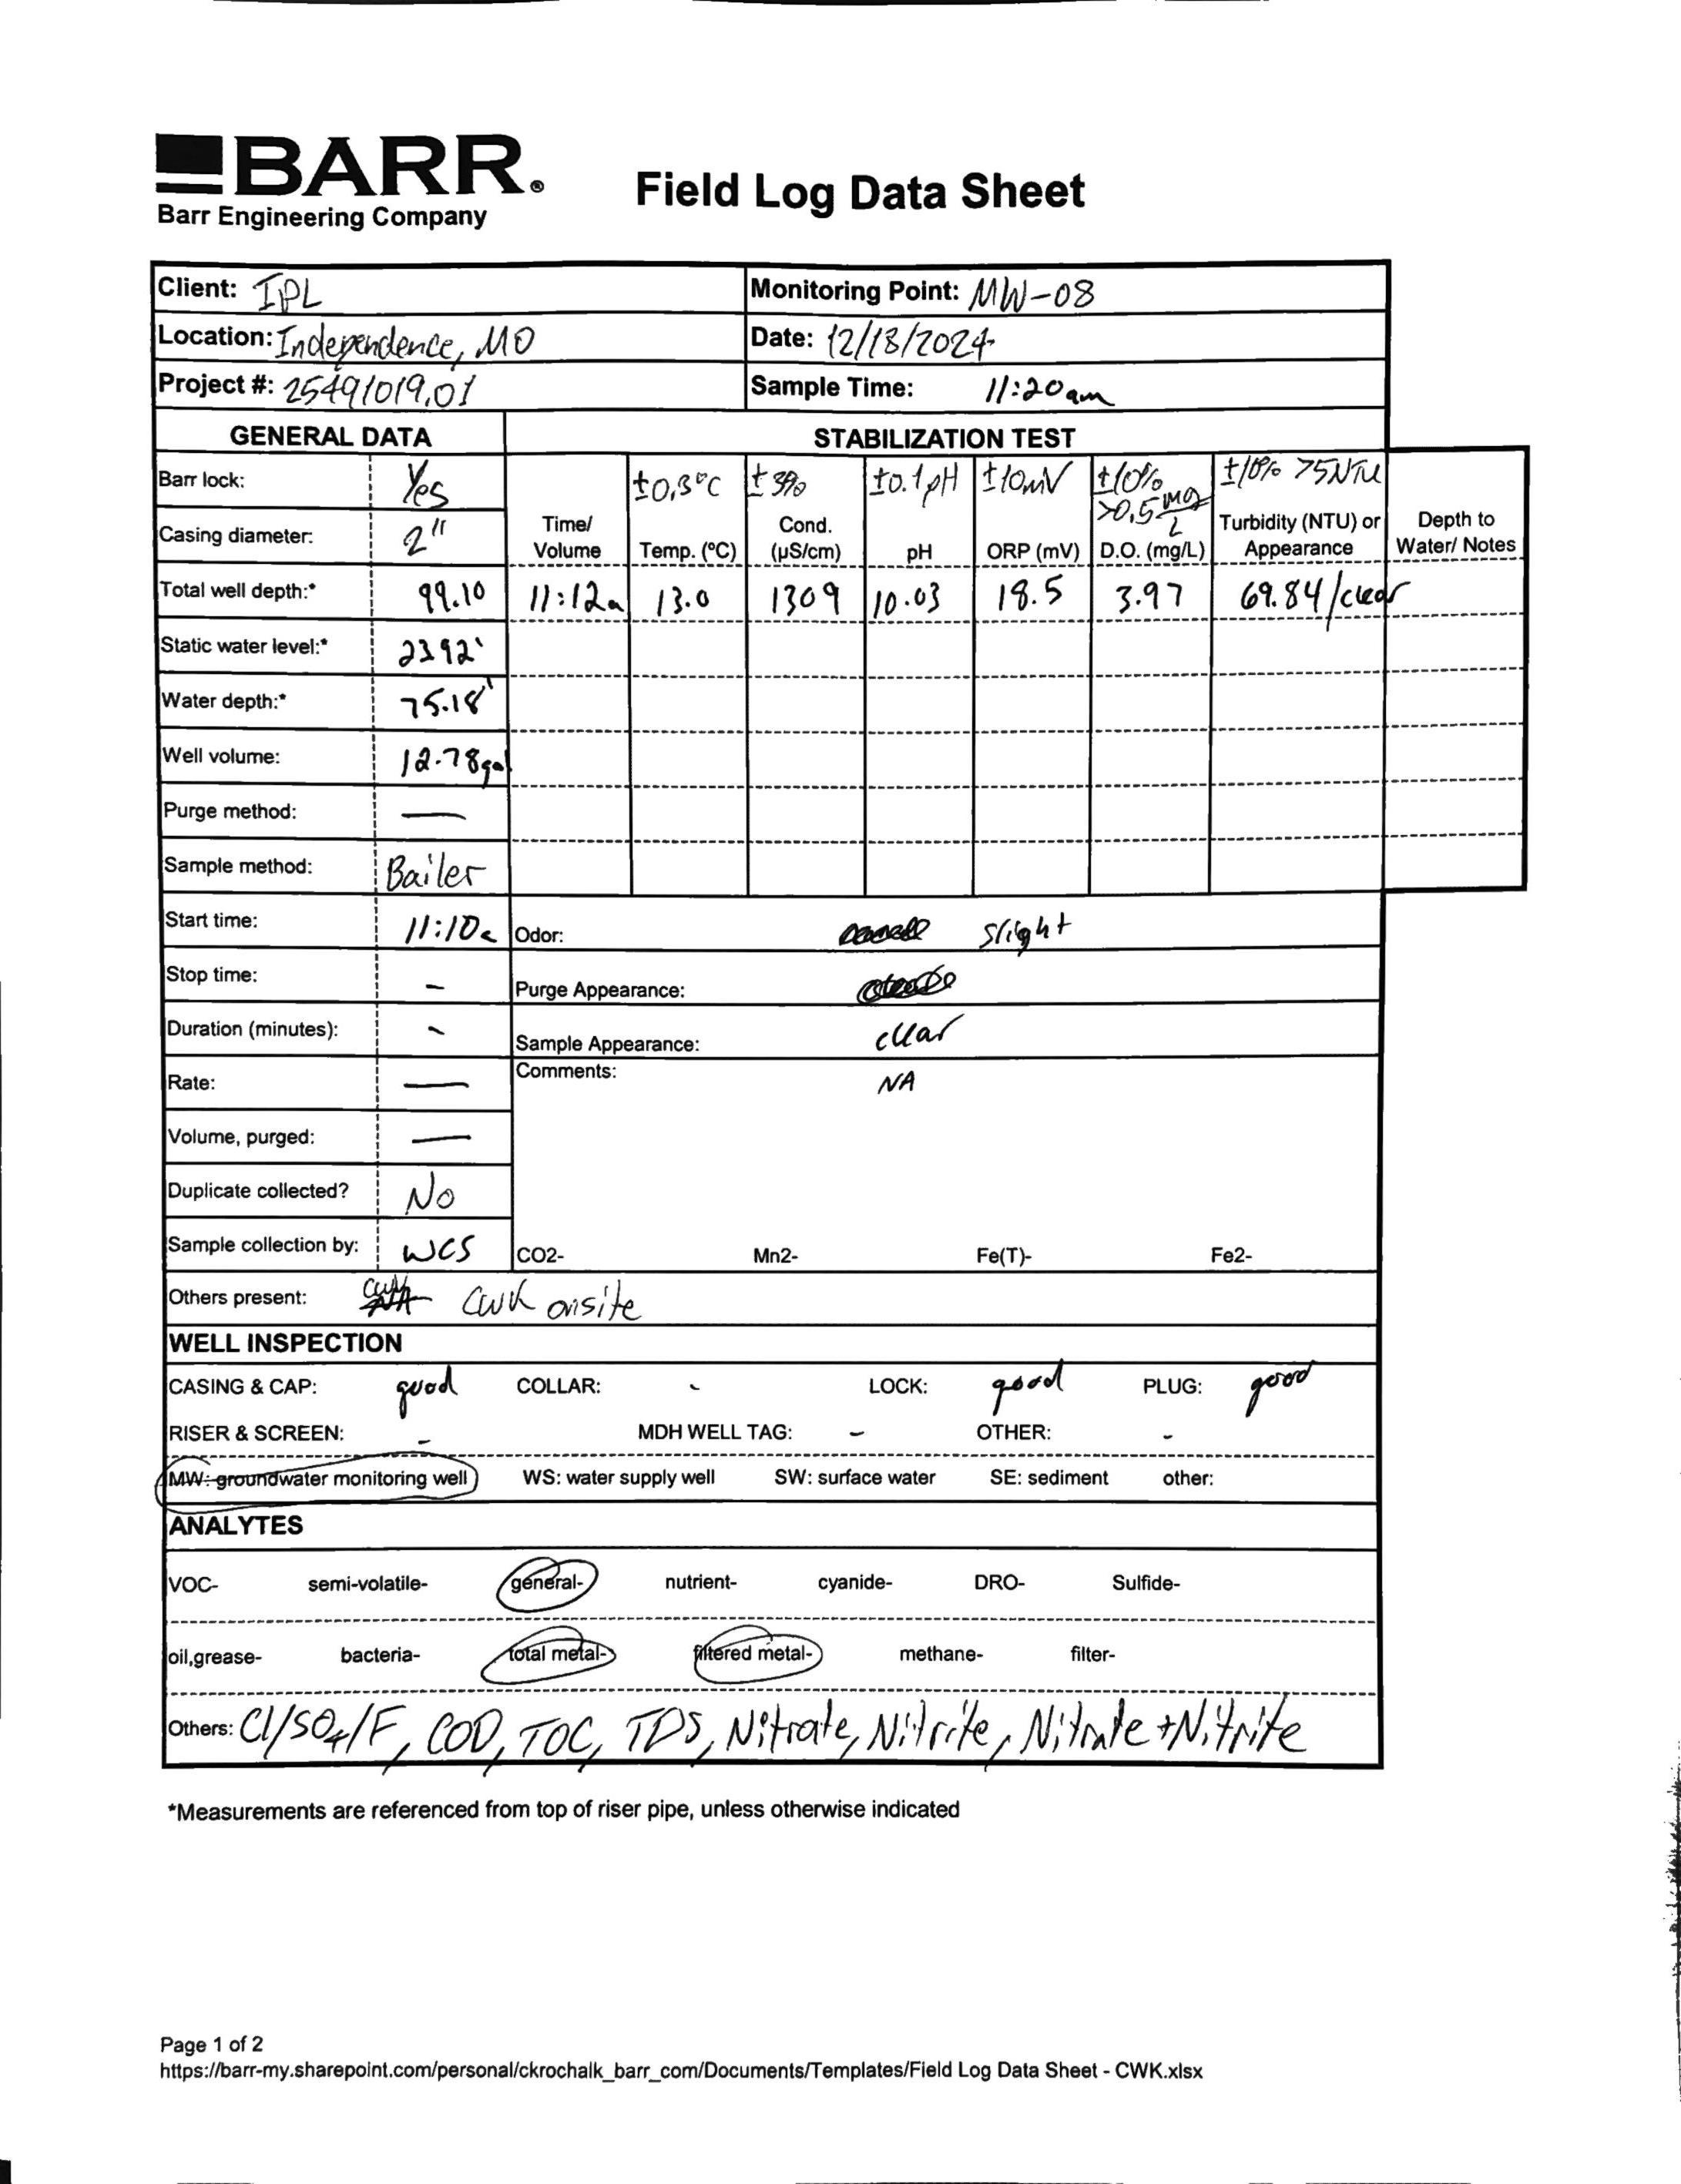 BARR®
Barr Engineering Company
Field Log Data Sheet
Client: IPL
Monitoring Point: MW-08
Location: Independence, MO
Date: 12/18/2024
Project #: 25491019.01
Sample Time: 11:20am
GENERAL DATA
STABILIZATION TEST
Barr lock: Yes
±0.3°C ±3% ±0.1pH ±10mV ±10% >0.5 mg/L ±10% >5NTU
Casing diameter: 2"
Time/ Volume Temp. (ºC) Cond. (µS/cm) pH ORP (mV) D.O. (mg/L) Turbidity (NTU) or Appearance Depth to Water/ Notes
Total well depth:* 99.10 11:12a 13.0 1309 10.03 18.5 3.97 69.84/clear
Static water level:* 23.92'
Water depth:* 75.18'
Well volume: 12.78gal
Purge method: —
Sample method: Bailer
Start time: 11:10a Odor: slight
Stop time: - Purge Appearance:
Duration (minutes): - Sample Appearance: clear
Comments: NA
Rate: —
Volume, purged: —
Duplicate collected? No
Sample collection by: WCS CO2- Mn2- Fe(T)- Fe2-
Others present: CWK onsite
WELL INSPECTION
CASING & CAP: good COLLAR: - LOCK: good PLUG: good
RISER & SCREEN: - MDH WELL TAG: - OTHER: -
MW: groundwater monitoring well WS: water supply well SW: surface water SE: sediment other:
ANALYTES
VOC- semi-volatile- general- nutrient- cyanide- DRO- Sulfide-
oil,grease- bacteria- total metal- filtered metal- methane- filter-
Others: Cl/SO4/F, COD, TOC, TDS, Nitrate, Nitrite, Nitrate+Nitrite
*Measurements are referenced from top of riser pipe, unless otherwise indicated
Page 1 of 2
https://barr-my.sharepoint.com/personal/ckrochalk_barr_com/Documents/Templates/Field Log Data Sheet - CWK.xlsx